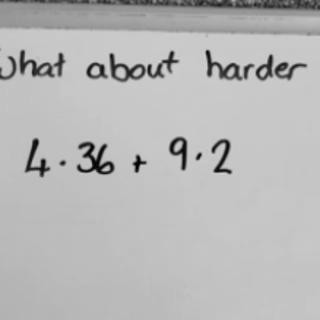 What about harder
4·36 + 9·2